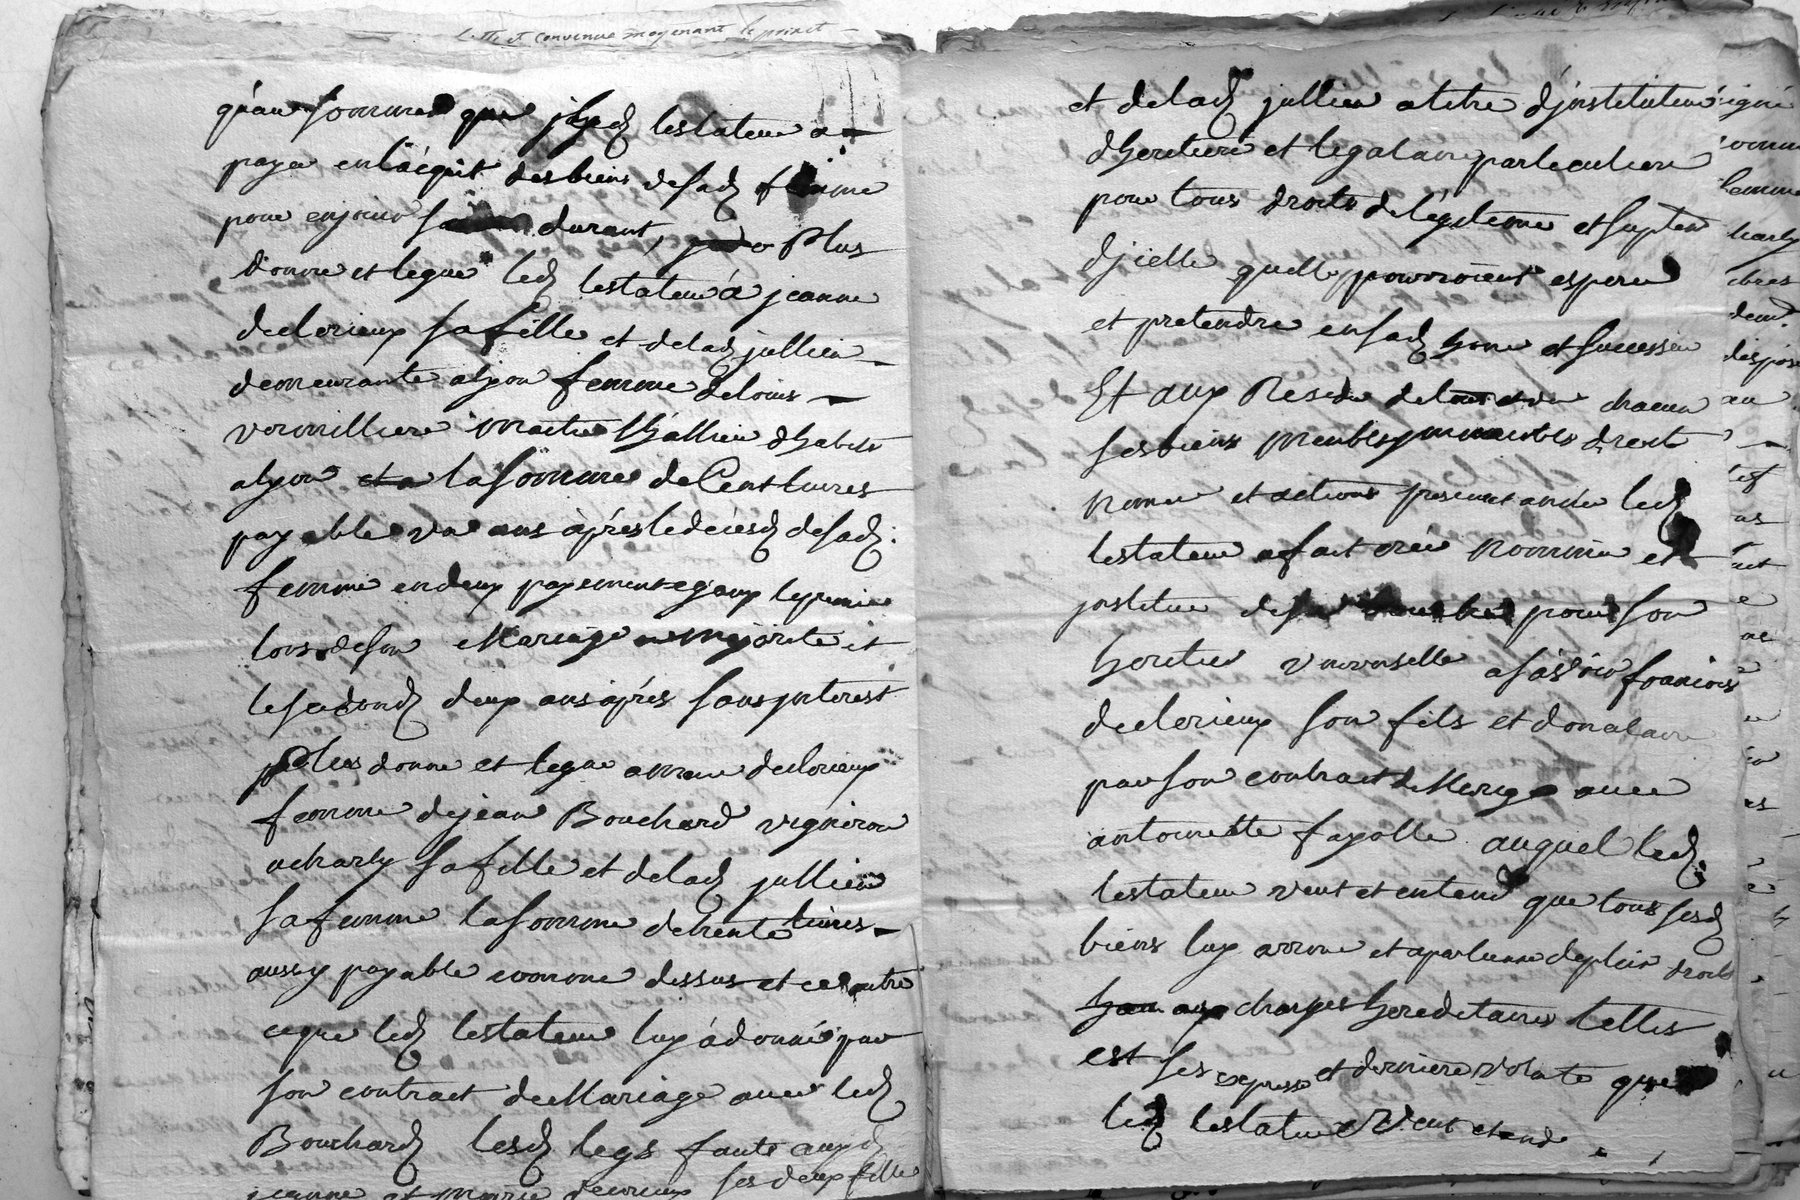 et convenue moyenant le prix et
qu'au sommes que led testateur a
payer en l'acquit des biens de sad femme
pour en jouir sa durant, Plus
donne et legue led testateur à jeanne
declerieux sa fille et delad jullien
demeurante a lyon femme de louis
vermilliere Maitre d'habits
a lyon la somme de Cent livres
payable un ans après le décesd de sad.
femme en deux payements egaux le premier
lors de son Mariage ou Majorite et
le second deux ans après sans jnterest
plus donne et legue a Marie declerieux
femme de jean Bouchard vigneron
a charly sa fille et delad jullien
sa femme la somme de trente livres
aussy payable comme dessus et ce outre
ce que led testateur luy à donné par
son contract de Mariage avec led
Bouchard lesd legs faits auxd
jeanne et Marie declerieux ses deux filles
et delad jullien a titre d'jnstitution
d'heritiere et legataire particuliere
pour tous droits de légitime et suplem
d'jcelle quelles pourroient esperer
et pretendre en sad hoirie et succession
Et aux Residu de tous chacun
ses biens meubles jmmeubles droits
noms et actions presents et avenir led
testateur a fait créé nommé et
jnstitue de sa bouche pour son
heritier universelle a sçavoir francois
declerieux son fils et donataire
par son contract de Mariage avec
antoinette fayolle auquel led.
testateur veut et entend que tous sesd
biens luy arrive et apartienne de plein droits
aux charges hereditaires telles
est ses expresse et derniere volonte que
led testateur Veut et ende